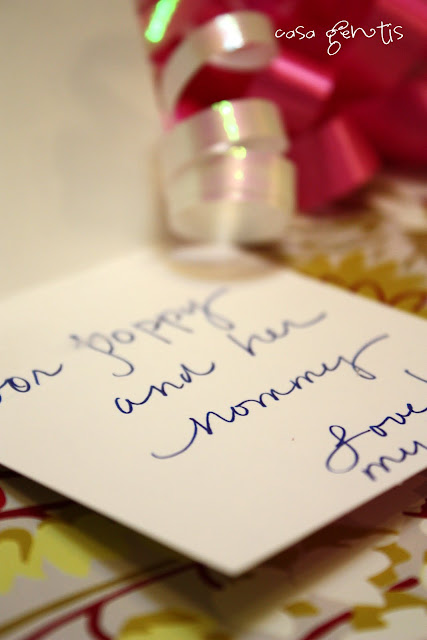 casa gentis
Poppy
and her
Mommy
Love